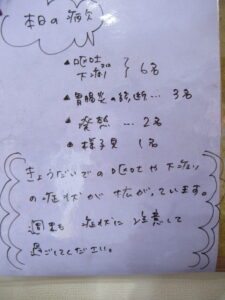 本日の病欠
▲嘔吐
下痢 } 6名
▲胃腸炎の診断… 3名
▲発熱… 2名
●様子見 1名
きょうだいでの嘔吐や下痢
の症状が拡がっています。
週末も 症状に注意して
過ごしてください。